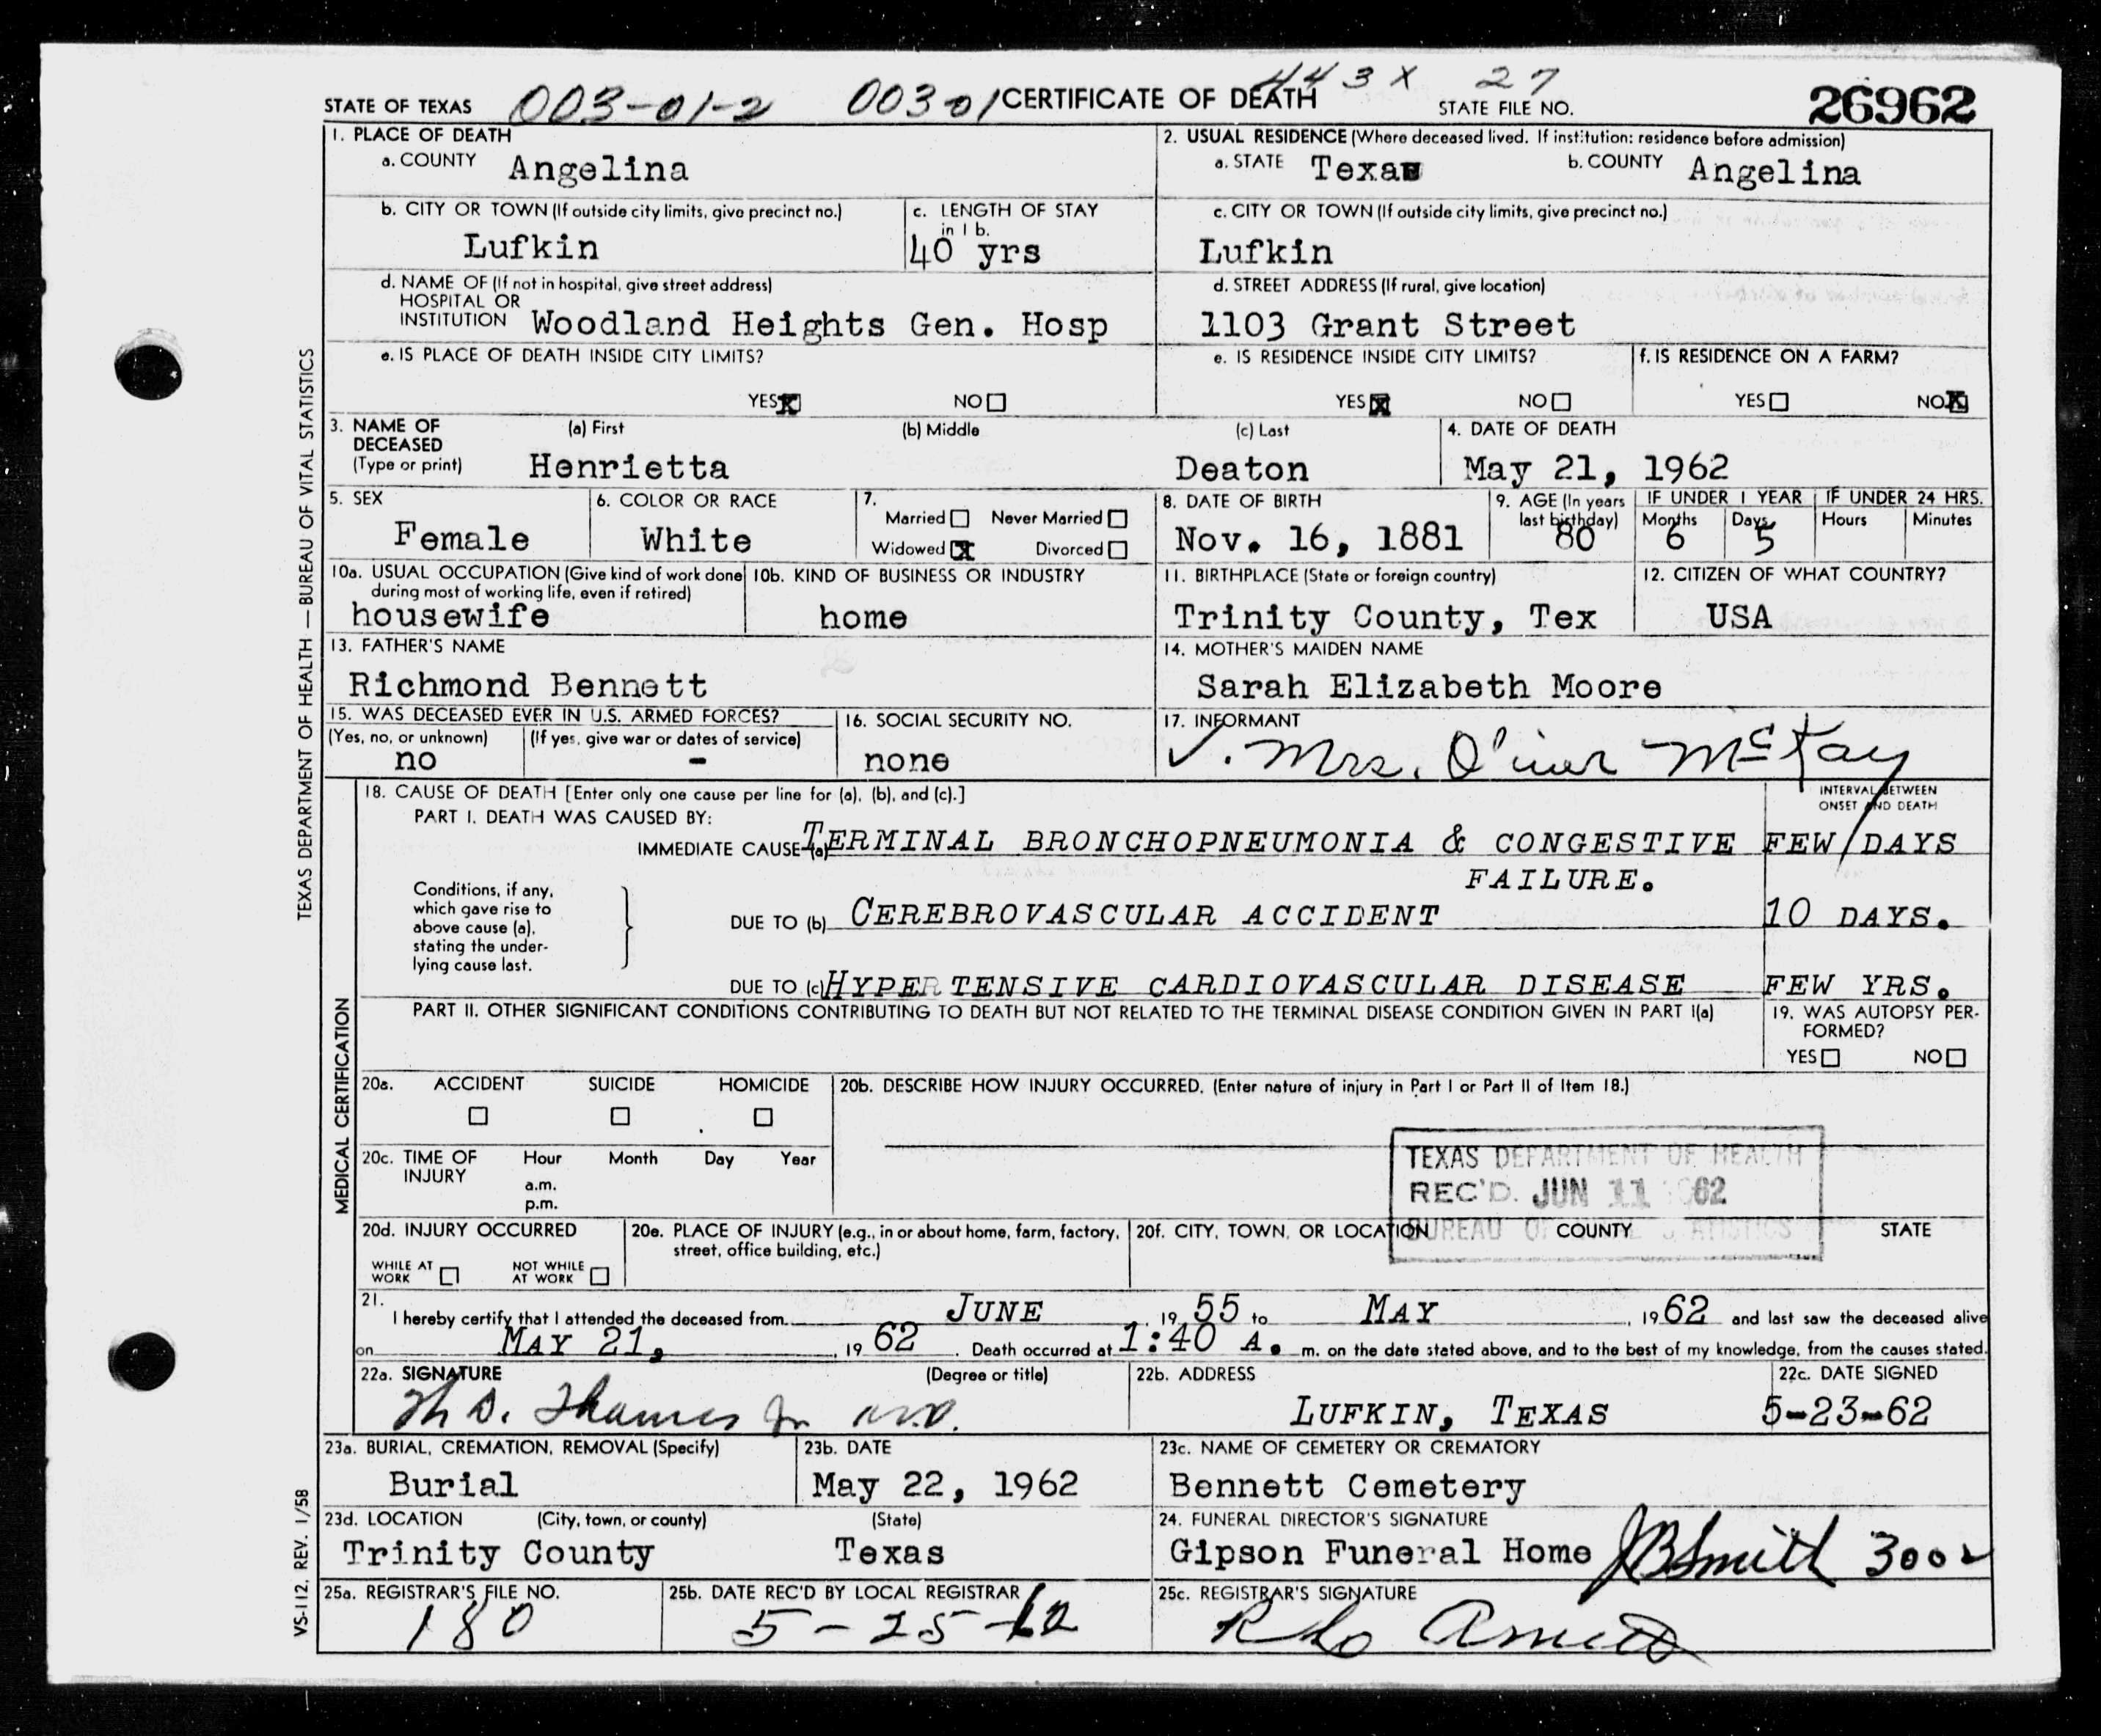 443 X 27
STATE OF TEXAS 003-01-2 003 01 CERTIFICATE OF DEATH STATE FILE NO. 26962
1. PLACE OF DEATH
a. COUNTY Angelina
2. USUAL RESIDENCE (Where deceased lived. If institution: residence before admission)
a. STATE Texas b. COUNTY Angelina
b. CITY OR TOWN (If outside city limits, give precinct no.)
Lufkin
c. LENGTH OF STAY
in 1 b.
40 yrs
c. CITY OR TOWN (If outside city limits, give precinct no.)
Lufkin
d. NAME OF (If not in hospital, give street address)
HOSPITAL OR
INSTITUTION Woodland Heights Gen. Hosp
d. STREET ADDRESS (If rural, give location)
1103 Grant Street
e. IS PLACE OF DEATH INSIDE CITY LIMITS?
YES X NO
e. IS RESIDENCE INSIDE CITY LIMITS?
YES X NO
f. IS RESIDENCE ON A FARM?
YES NO X
3. NAME OF
DECEASED
(Type or print)
(a) First (b) Middle (c) Last
Henrietta Deaton
4. DATE OF DEATH
May 21, 1962
5. SEX
Female
6. COLOR OR RACE
White
7.
Married Never Married
Widowed X Divorced
8. DATE OF BIRTH
Nov. 16, 1881
9. AGE (In years
last birthday)
80
IF UNDER 1 YEAR
Months Days
6 5
IF UNDER 24 HRS.
Hours Minutes
10a. USUAL OCCUPATION (Give kind of work done
during most of working life, even if retired)
housewife
10b. KIND OF BUSINESS OR INDUSTRY
home
11. BIRTHPLACE (State or foreign country)
Trinity County, Tex
12. CITIZEN OF WHAT COUNTRY?
USA
13. FATHER'S NAME
Richmond Bennett
14. MOTHER'S MAIDEN NAME
Sarah Elizabeth Moore
15. WAS DECEASED EVER IN U.S. ARMED FORCES?
(Yes, no, or unknown) (If yes, give war or dates of service)
no -
16. SOCIAL SECURITY NO.
none
17. INFORMANT
Mrs. McKay
18. CAUSE OF DEATH [Enter only one cause per line for (a), (b), and (c).]
INTERVAL BETWEEN
ONSET AND DEATH
PART I. DEATH WAS CAUSED BY:
IMMEDIATE CAUSE (a) TERMINAL BRONCHOPNEUMONIA & CONGESTIVE FEW DAYS
FAILURE.
Conditions, if any,
which gave rise to
above cause (a),
stating the under-
lying cause last.
DUE TO (b) CEREBROVASCULAR ACCIDENT 10 DAYS.
DUE TO (c) HYPERTENSIVE CARDIOVASCULAR DISEASE FEW YRS.
PART II. OTHER SIGNIFICANT CONDITIONS CONTRIBUTING TO DEATH BUT NOT RELATED TO THE TERMINAL DISEASE CONDITION GIVEN IN PART I(a)
19. WAS AUTOPSY PER-
FORMED?
YES NO
20a. ACCIDENT SUICIDE HOMICIDE
20b. DESCRIBE HOW INJURY OCCURRED. (Enter nature of injury in Part I or Part II of Item 18.)
20c. TIME OF
INJURY
Hour Month Day Year
a.m.
p.m.
TEXAS DEPARTMENT OF HEALTH
REC'D. JUN 11 1962
BUREAU OF STATISTICS
20d. INJURY OCCURRED
WHILE AT
WORK
NOT WHILE
AT WORK
20e. PLACE OF INJURY (e.g., in or about home, farm, factory,
street, office building, etc.)
20f. CITY, TOWN, OR LOCATION COUNTY STATE
21.
I hereby certify that I attended the deceased from JUNE, 19 55 to MAY, 19 62 and last saw the deceased alive
on MAY 21, 19 62. Death occurred at 1:40 A. m. on the date stated above, and to the best of my knowledge, from the causes stated.
22a. SIGNATURE (Degree or title)
D. Thames Jr M.D.
22b. ADDRESS
LUFKIN, TEXAS
22c. DATE SIGNED
5-23-62
23a. BURIAL, CREMATION, REMOVAL (Specify)
Burial
23b. DATE
May 22, 1962
23c. NAME OF CEMETERY OR CREMATORY
Bennett Cemetery
23d. LOCATION (City, town, or county) (State)
Trinity County Texas
24. FUNERAL DIRECTOR'S SIGNATURE
Gipson Funeral Home JB Smith 3002
25a. REGISTRAR'S FILE NO.
180
25b. DATE REC'D BY LOCAL REGISTRAR
5-25-62
25c. REGISTRAR'S SIGNATURE
TEXAS DEPARTMENT OF HEALTH — BUREAU OF VITAL STATISTICS
MEDICAL CERTIFICATION
VS-112, REV. 1/58